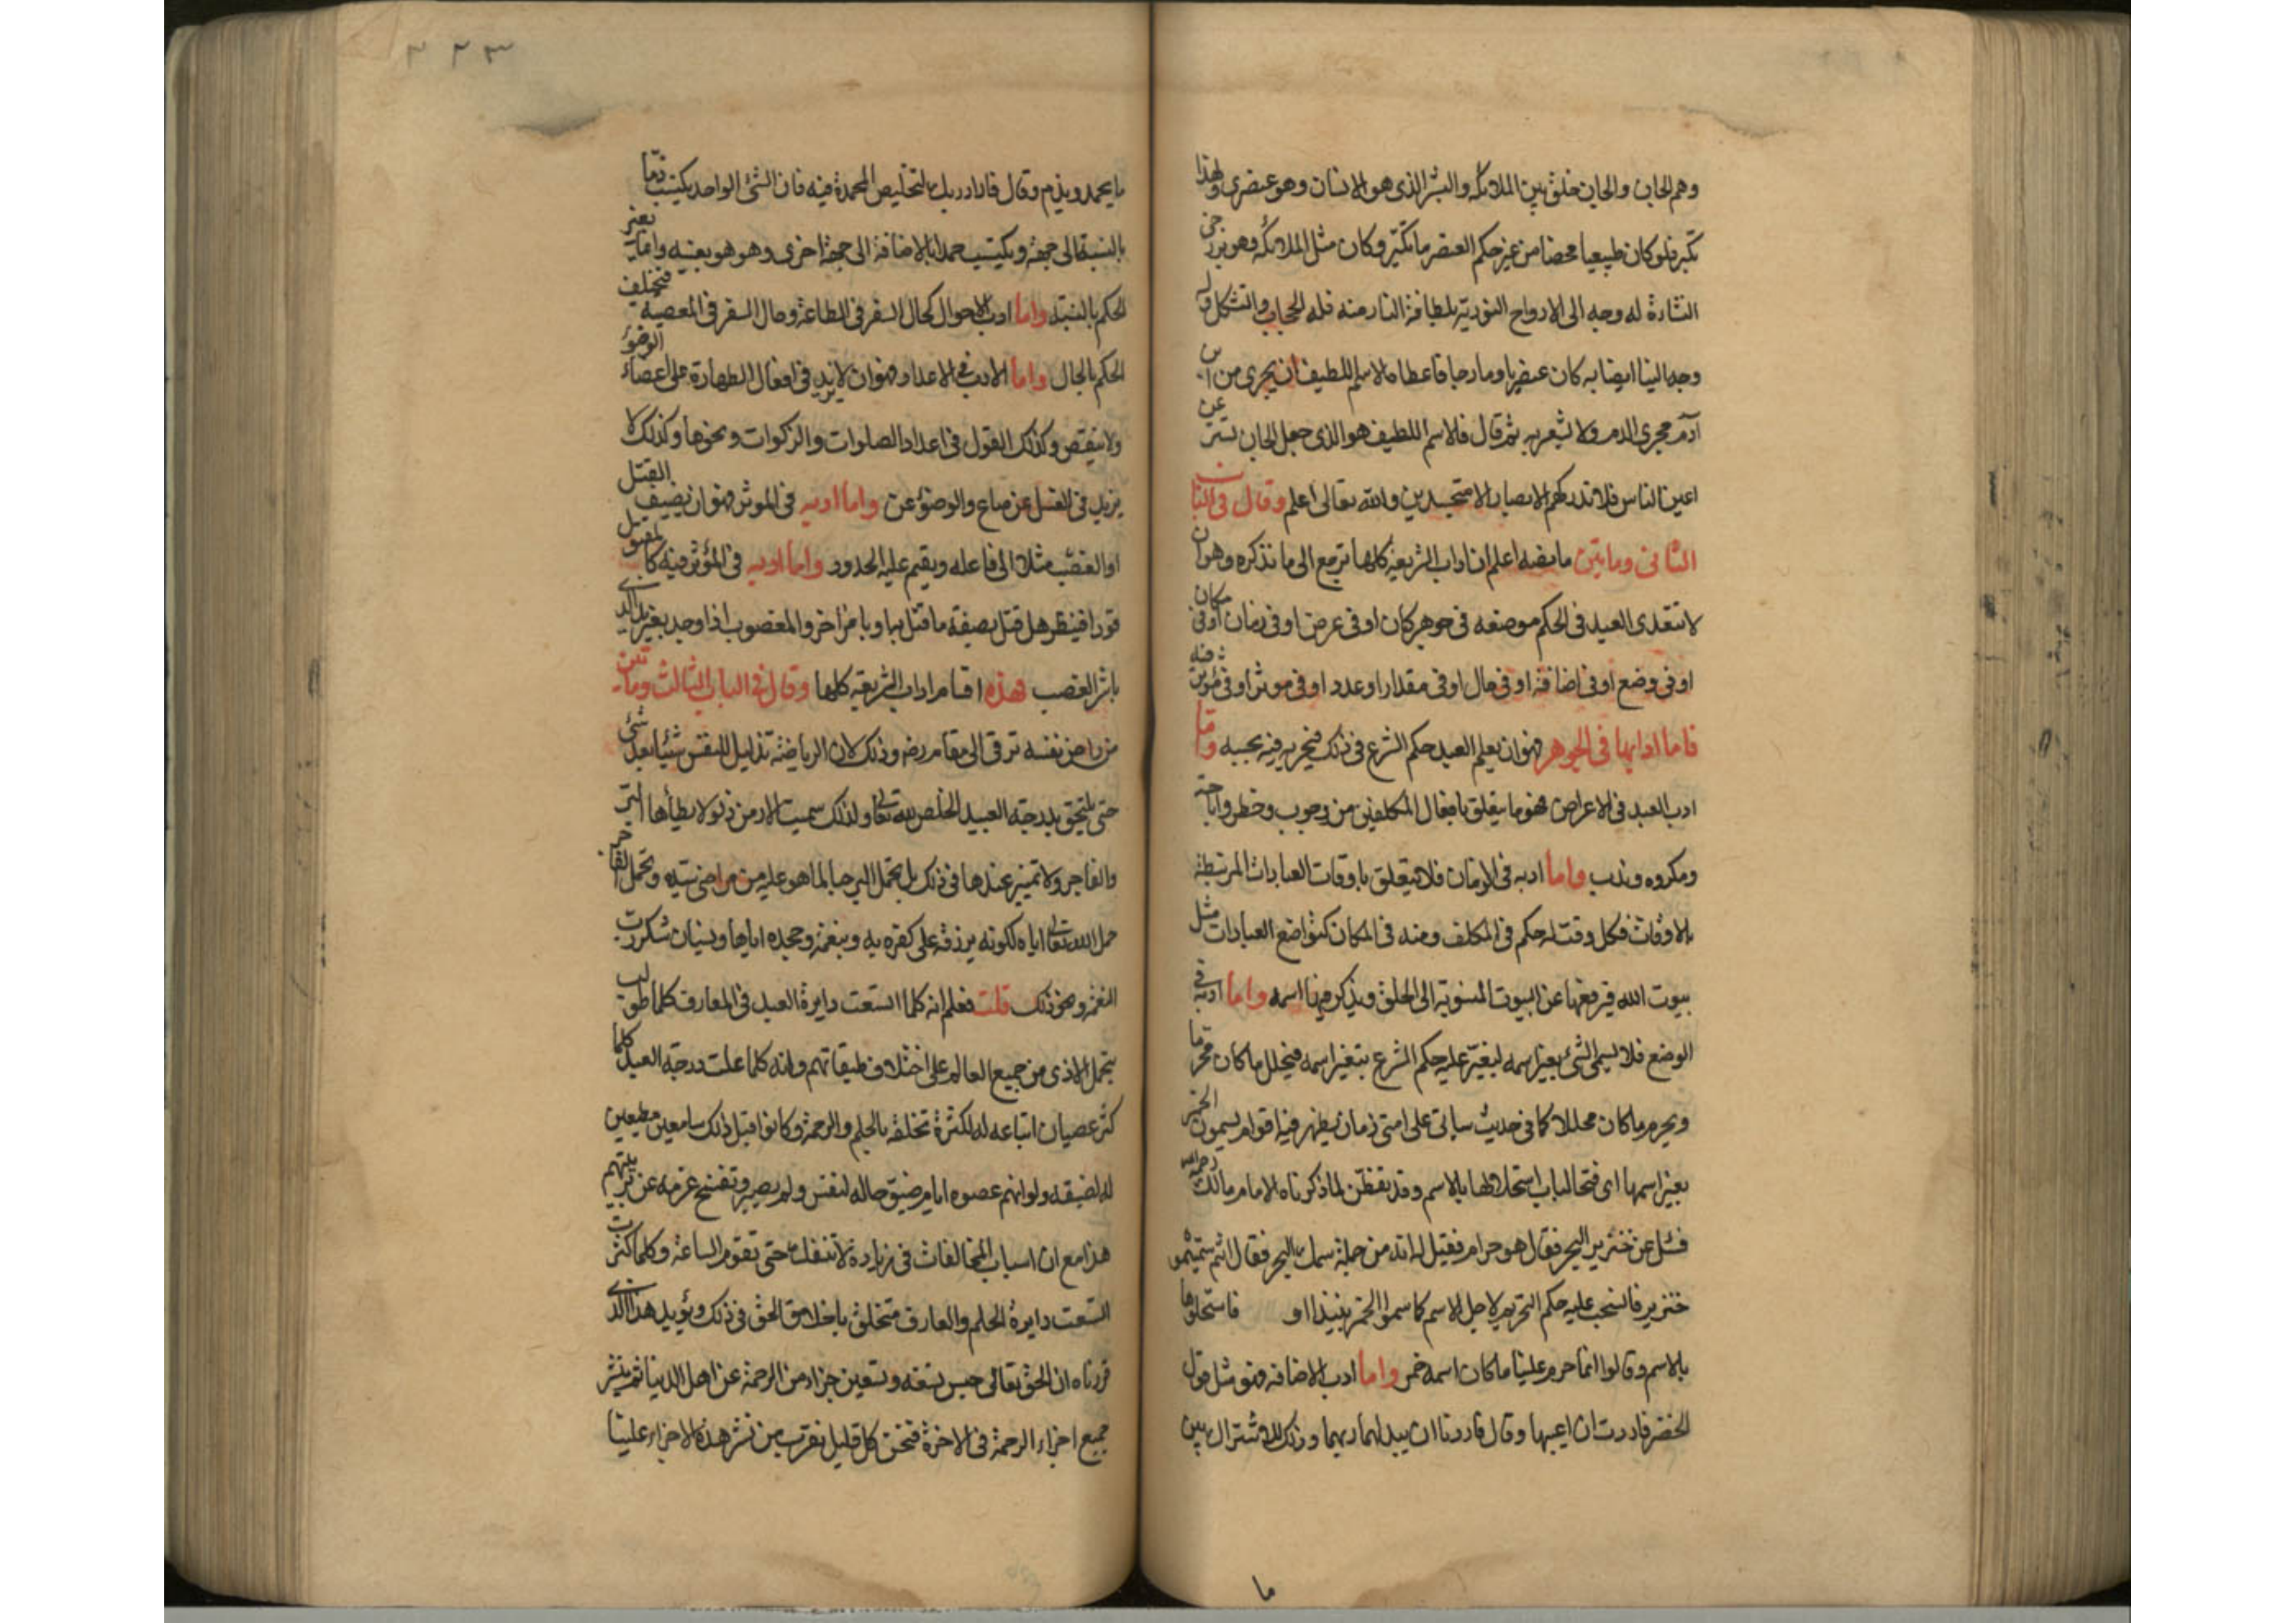 وهم الجان والجان خلق بين الملائكة والبشر الذى هو الانسان وهو عنصرى ولهذا
تكبر فلو كان طبيعيا محضا من غير حكم العنصر ما تكبر وكان مثل الملائكة وهو برزخى
النشاءة له وجه الى الارواح النورية بلطافة النار منه فله الحجاب والتشكل وله
وجه الينا ايضا به كان عنصريا ومارجا فاعطاه الاسم اللطيف ان يجرى من ابن
آدم مجرى الدم ولا يشعر به ثم قال فالاسم اللطيف هو الذى جعل الجان تستر عن
اعين الناس فلا تدركهم الابصار الا متجسدين والله تعالى اعلم وقال فى الباب
الثانى ومايتين ما نصه اعلم ان اداب الشريعة كلها ترجع الى ما نذكره وهو ان
لا يتعدى العبد فى الحكم موضعه فى جوهر كان او فى عرض او فى زمان او فى مكان
او فى وضع او فى اضافة او فى حال او فى مقدار او عدد او فى موثر او فى مؤثر فيه
فاما ادابها فى الجوهر فهو ان يعلم العبد حكم الشرع فى ذلك فيجريه فيه بحسبه واما
ادب العبد فى الاعراض فهو ما يتعلق بافعال المكلفين من وجوب وحظر واباحة
ومكروه وندب واما ادبه فى الازمان فلا يتعلق باوقات العبادات المرتبطة
بالاوقات فكل وقت له حكم فى المكلف ومنه فى المكان كمواضع العبادات مثل
بيوت الله فيرفعها عن البيوت المنسوبة الى الخلق ويذكر فيها اسمه واما ادبه فى
الوضع فلا يسمى الشئ بغير اسمه ليغير عليه حكم الشرع بتغير اسمه فيحلل ما كان محرما
ويحرم ما كان محللا كما فى حديث سياتى على امتى زمان يظهر فيه اقوام يسمون الخمر
بغير اسمها اى فتحا لباب استحلالها بالاسم وقد تفطن لما ذكرناه الامام مالك رحمه الله
فسئل عن خنزير البحر فقال هو حرام فقيل له انه من جملة سمك البحر فقال انتم سميتموه
خنزير فانسحب عليه حكم التحريم لاجل الاسم كما سموا الخمر نبيذا او فاستحلوها
بالاسم وقالوا انما حرم علينا ما كان اسمه خمر واما ادب الاضافة فهو مثل قول
الخضر فاردت ان اعيبها وقال فاردنا ان يبدلهما ربهما وذلك للاشتراك بين
ما
٣٢٣
ما يحمد ويذم وقال فاراد ربك لتخليص المحمدة فيه فان الشئ الواحد يكتسب ذما
بالنسبة الى جهة ويكتسب حمدا بالاضافة الى جهة اخرى وهو هو بعينه وانما يتغير
الحكم بالنسبة واما ادب الاحوال كحال السفر فى الطاعة وحال السفر فى المعصية فيختلف
الحكم بالحال واما الادب فى الاعداد فهو ان لا يزيد فى افعال الطهارة على اعضاء الوضوء
ولا ينقص وكذلك القول فى اعداد الصلوات والزكوات ونحوها وكذلك لا
يزيد فى الغسل عن صاع والوضوء عن واما ادبه فى الموثر فهو ان يضيف القتل
او الغصب مثلا الى فاعله ويقيم عليه الحدود واما ادبه فى المؤثر فيه كالمقتول
قودا فينظر هل قتل بصفة ما قتل به او بامر آخر والمغصوب اذا وجد بغير يد الذى
باشر الغصب فهذه اقسام اداب الشريعة كلها وقال فى الباب الثالث ومايتين
من راض نفسه ترقى الى مقام رضه وذلك لان الرياضة تذليل للنفس شيئا بعد شئ
حتى يلتحق بدرجة العبيد الخلص لله تعالى ولذلك سميت الارض ذلولا يطأها البر
والفاجر ولا تميز عندها فى ذلك بل تحمل البر حبا لما هو عليه من مراضى سيده وتحمل الفاجر
حمل الله تعالى اياه لكونه يرزقه على كفره به وبنعمه وجحده اياها ونسيان شكر رب
النعمة ونحو ذلك قلت فعلم انه كلما اتسعت دايرة العبد فى المعارف كلما طولب
بتحمل الاذى من جميع العالم على اختلاف طبقاتهم وانه كلما علت درجة العبد كلما
كثر عصيان اتباعه له لكثرة تخلقه بالحلم والرحمة وكانوا قبل ذلك سامعين مطيعين
له لضيقه ولو انهم عصوه ايام ضيق حاله لنفس ولم يصبر وتفسخ عزمه عن تربيتهم
هذا مع ان اسباب المخالفات فى زيادة لا تنفك حتى تقوم الساعة وكلما كثرت
اتسعت دايرة الحلم والعارف متخلق باخلاق الحق فى ذلك ويؤيد هذا الذى
قررناه ان الحق تعالى حبس تسعة وتسعين جزاء من الرحمة عن اهل الدنيا ثم ينشر
جميع اجزاء الرحمة فى الاخرة فنحن كل قليل نقرب من نشر هذه الاجزاء علينا